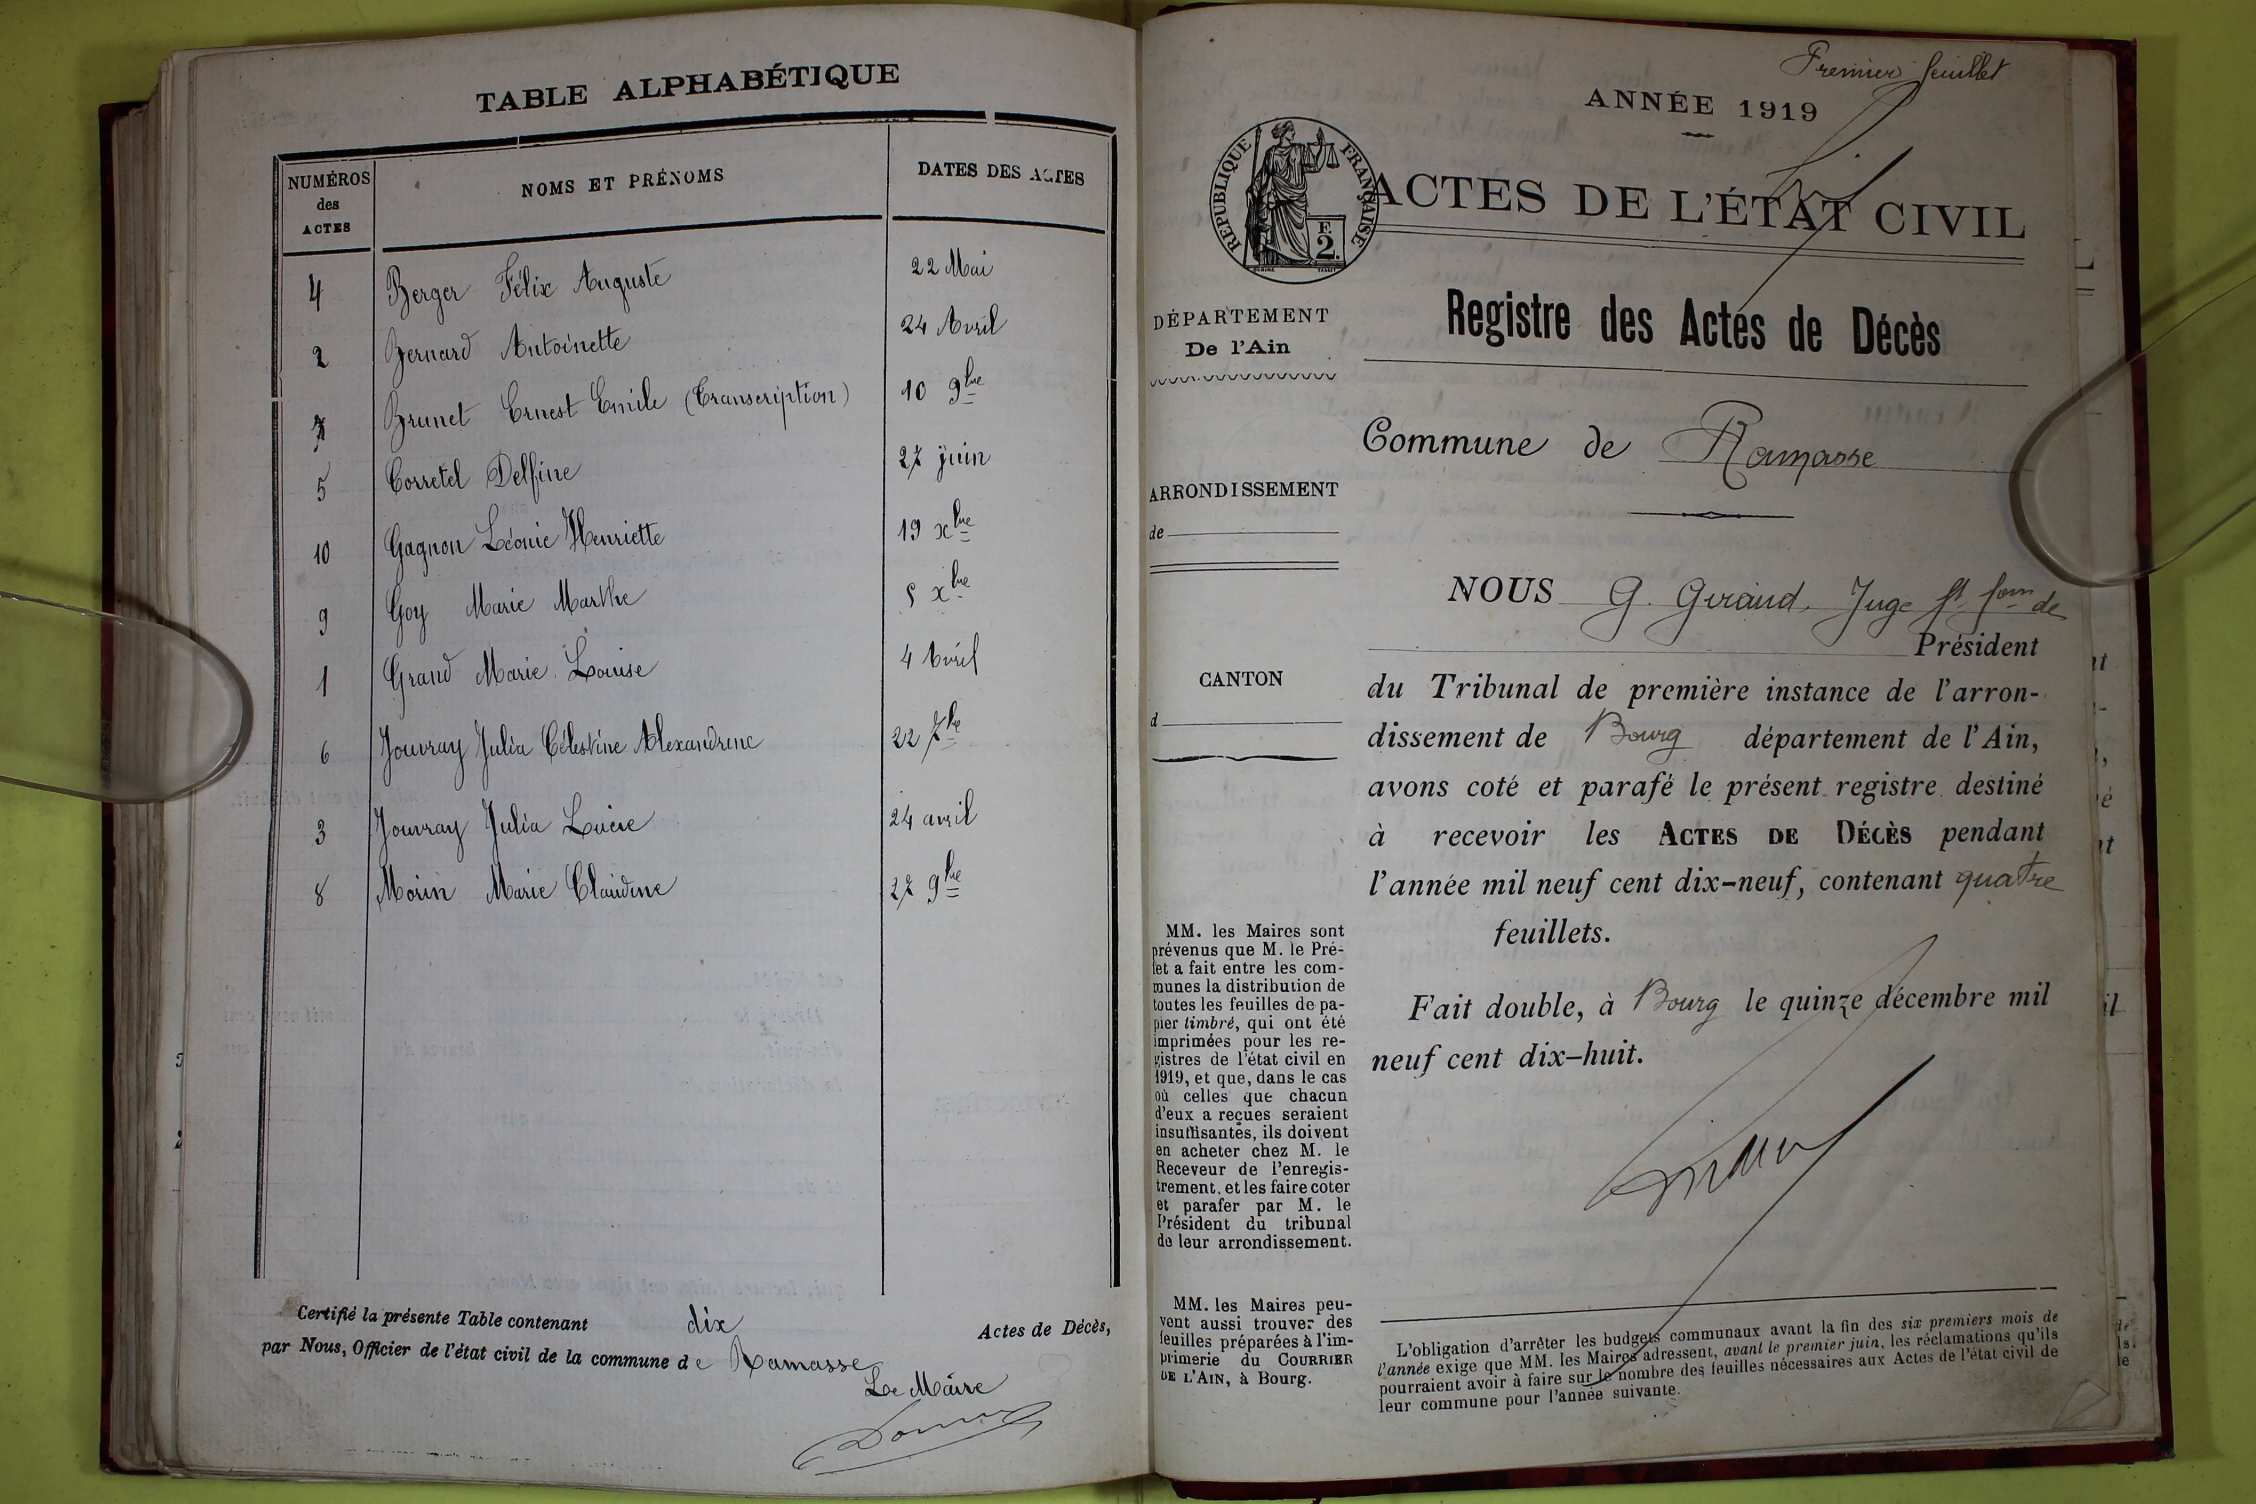 TABLE ALPHABÉTIQUE
NUMÉROS des ACTES NOMS ET PRÉNOMS DATES DES ACTES
4 Berger Félix Auguste 22 Mai
2 Bernard Antoinette 24 Avril
7 Brunet Ernest Emile (Transcription) 10 9bre
5 Corretel Delfine 27 juin
10 Gagnon Léonie Henriette 19 xbre
9 Goy Marie Marthe 5 xbre
1 Grand Marie Louise 4 Avril
6 Jouvray Julia Célestine Alexandrine 22 7bre
3 Jouvray Julia Lucie 24 avril
8 Morin Marie Claudine 27 9bre
Certifié la présente Table contenant dix Actes de Décès,
par Nous, Officier de l'état civil de la commune de Ramasse
Le Maire
Premier feuillet
ANNÉE 1919
RÉPUBLIQUE FRANÇAISE
F. 2.
ACTES DE L'ÉTAT CIVIL
Registre des Actes de Décès
DÉPARTEMENT
De l'Ain
Commune de Ramasse
ARRONDISSEMENT
de
CANTON
d
NOUS G. Giraud, Juge ft fons de
Président
du Tribunal de première instance de l'arron-
dissement de Bourg département de l'Ain,
avons coté et parafé le présent registre destiné
à recevoir les ACTES DE DÉCÈS pendant
l'année mil neuf cent dix-neuf, contenant quatre
feuillets.
Fait double, à Bourg le quinze décembre mil
neuf cent dix-huit.
MM. les Maires sont
prévenus que M. le Pré-
fet a fait entre les com-
munes la distribution de
toutes les feuilles de pa-
pier timbré, qui ont été
imprimées pour les re-
gistres de l'état civil en
1919, et que, dans le cas
où celles que chacun
d'eux a reçues seraient
insuffisantes, ils doivent
en acheter chez M. le
Receveur de l'enregis-
trement, et les faire coter
et parafer par M. le
Président du tribunal
de leur arrondissement.
MM. les Maires peu-
vent aussi trouver des
feuilles préparées à l'im-
primerie du COURRIER
DE L'AIN, à Bourg.
L'obligation d'arrêter les budgets communaux avant la fin des six premiers mois de
l'année exige que MM. les Maires adressent, avant le premier juin, les réclamations qu'ils
pourraient avoir à faire sur le nombre des feuilles nécessaires aux Actes de l'état civil de
leur commune pour l'année suivante.